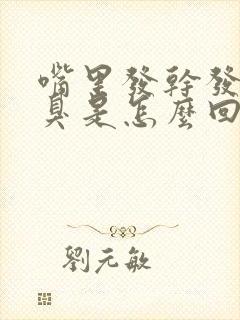 嘴里發幹發
臭是怎麼回
劉元敏